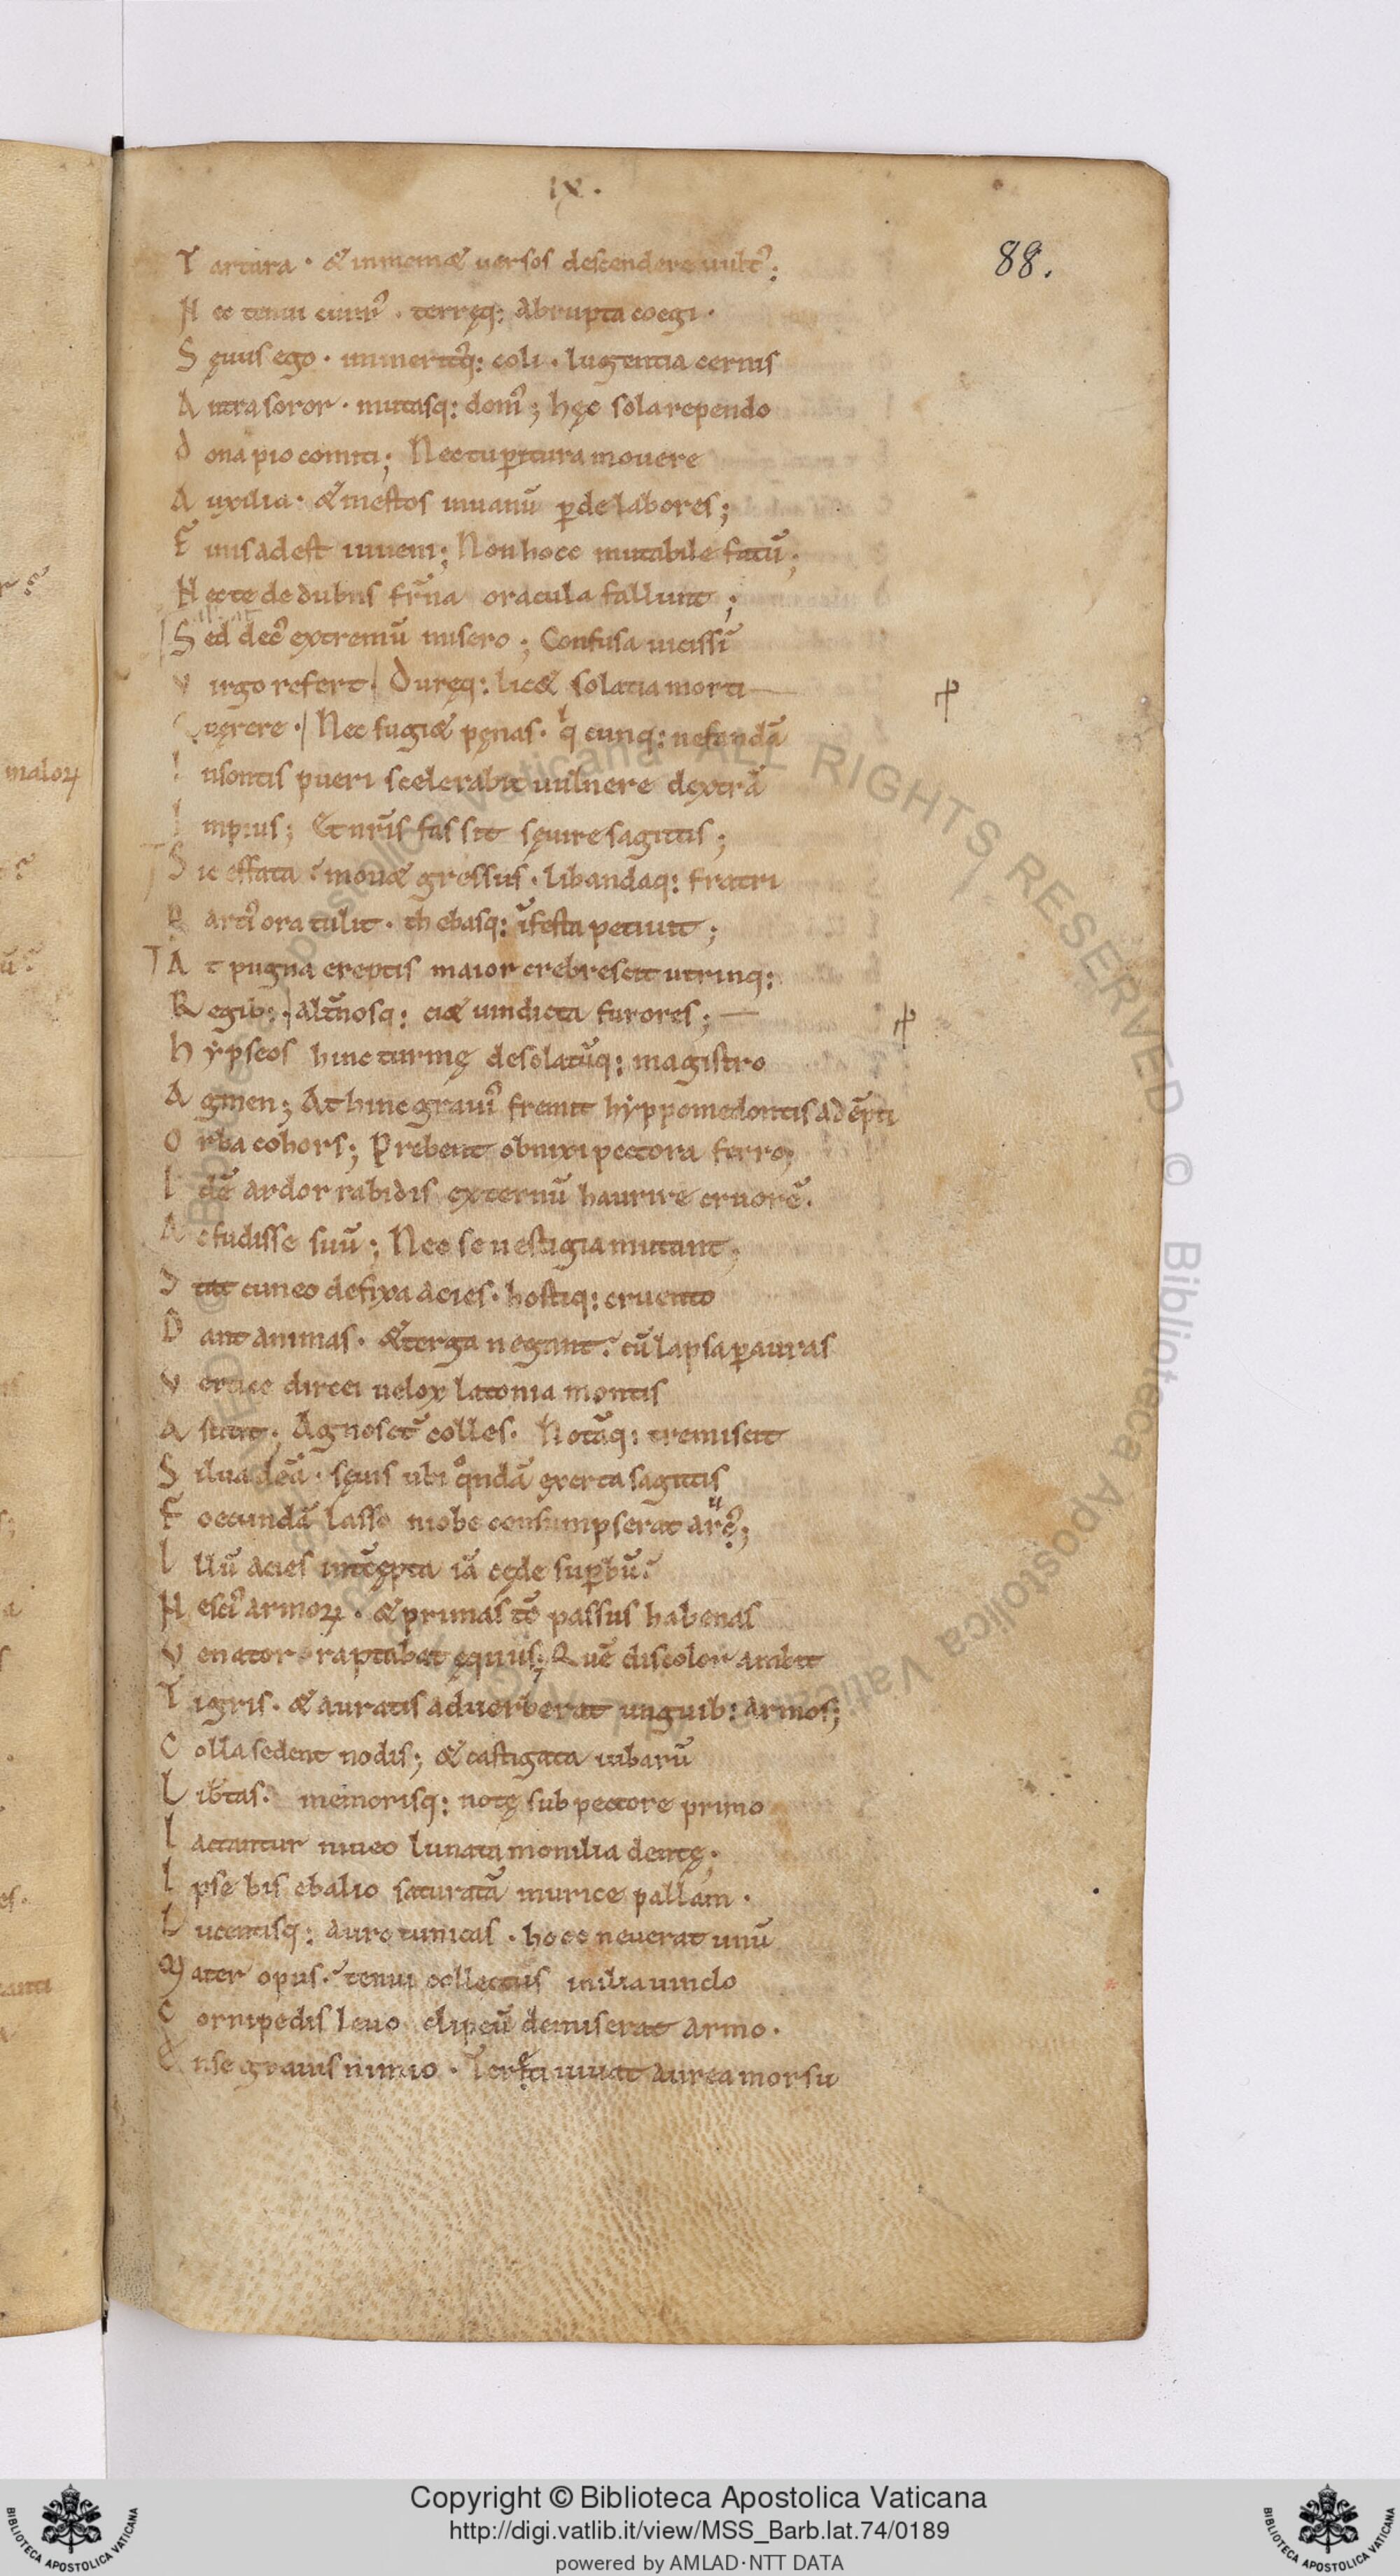 IX.
88.
Tartara · & inmemͥe uersos descendere uultꝰ:
Nec tenui cinerē · terręq: abrupta coegi·
Sęuus ego · inmeritꝰq: coli · lugentia cernis
Antra soror · mutasq: domꝰ; hęc sola rependo
Dona pio comiti; Nec tu peritura mouere
Auxilia · & męstos inuanū pde labores;
Finis adest iuueni; Non hoc mutabile fatū;
Nec te de dubiis fr̄na oracula fallunt;
Sed decꝰ extremū misero; Confusa uicissī
Virgo refert· Duręq: lic& solatia morti
Quęrere · Nec fugi& pęnas · qͥcunq: nefandā
Insontis pueri scelerabit uulnere dextrā
Impius; Et nr̄is fas sit sęuire sagittis;
Sic effata · mou& gressus · libandaq: fratri
Parcꝰ ora tulit · thebasq: īfesta petiuit;
At pugna ereptis maior crebrescit utrinq:
Regib:· Altn̄osq: ci& uindicta furores;
Hẏpseos hinc turmę desolatūq: magistro
Agmen; At hinc grauiꝰ fremit hẏppomedontis adēpti
Orba cohors; Prebent obnixi pectora ferro;
Idē ardor rabidis externū haurire cruorē.
Ac fudisse suū; Nec se uestigia mutant;
Stat cuneo defixa acies · hostiq: cruento
Dant animas · & terga negant · cū lapsa p auras
Vertice dircei uelox latonia montis
Astitit; Agnoscūt colles · Notāq: tremiscit
Silua deā · sęuis ubi qͦndā exerta sagittis
Foecundā lasso niobe consumpserat arcū;
Illū acies int̄cępta iā cęde supbū
Nesciꝰ armoꝝ · & primas tē passus habenas
Venator raptabat equus; Quē discolor ambit
Tigris · & auratis aduerberat unguib: armos;
Colla sedent nodis; & castigata iubarū
Lib̄tas· memorisq: notę sub pectore primo
Iactantur niueo lunata monilia dentę;
Ipse bis ebalio saturatā murice pallam ·
Lucentisq: auro tunicas · hoc neuerat unū
Mater opus· tenui collectus in ilia uinclo
Cornipedis leuo clipeū demiserat armo·
Ense grauis nimio · Tereti iuuat aurea morsu
Copyright © Biblioteca Apostolica Vaticana
http://digi.vatlib.it/view/MSS_Barb.lat.74/0189
powered by AMLAD·NTT DATA